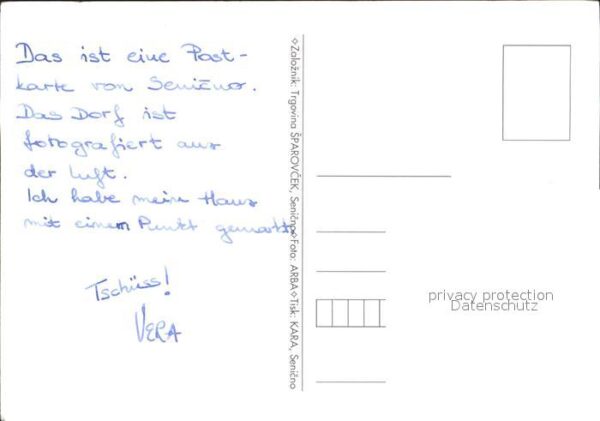 Das ist eine Post-
karte von Senično.
Das Dorf ist
fotografiert aus
der Luft.
Ich habe mein Haus
mit einem Punkt gemacht.
Tschüss!
VERA
❖Založnik: Trgovina ŠPAROVČEK, Senično❖Foto: ARBA❖Tisk: KARA, Senično
privacy protection
Datenschutz